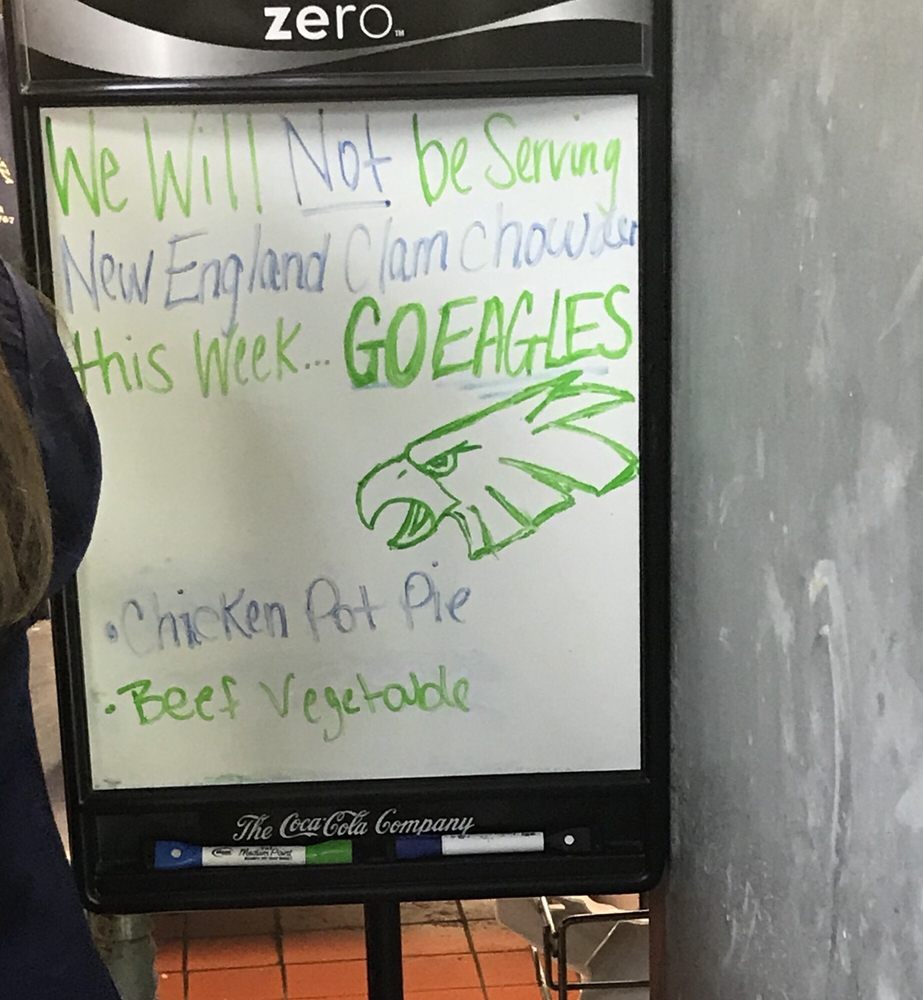 zero™
We Will Not be Serving
New England Clam Chowder
this Week... GO EAGLES
• Chicken Pot Pie
• Beef Vegetable
The Coca-Cola Company
Medium Point